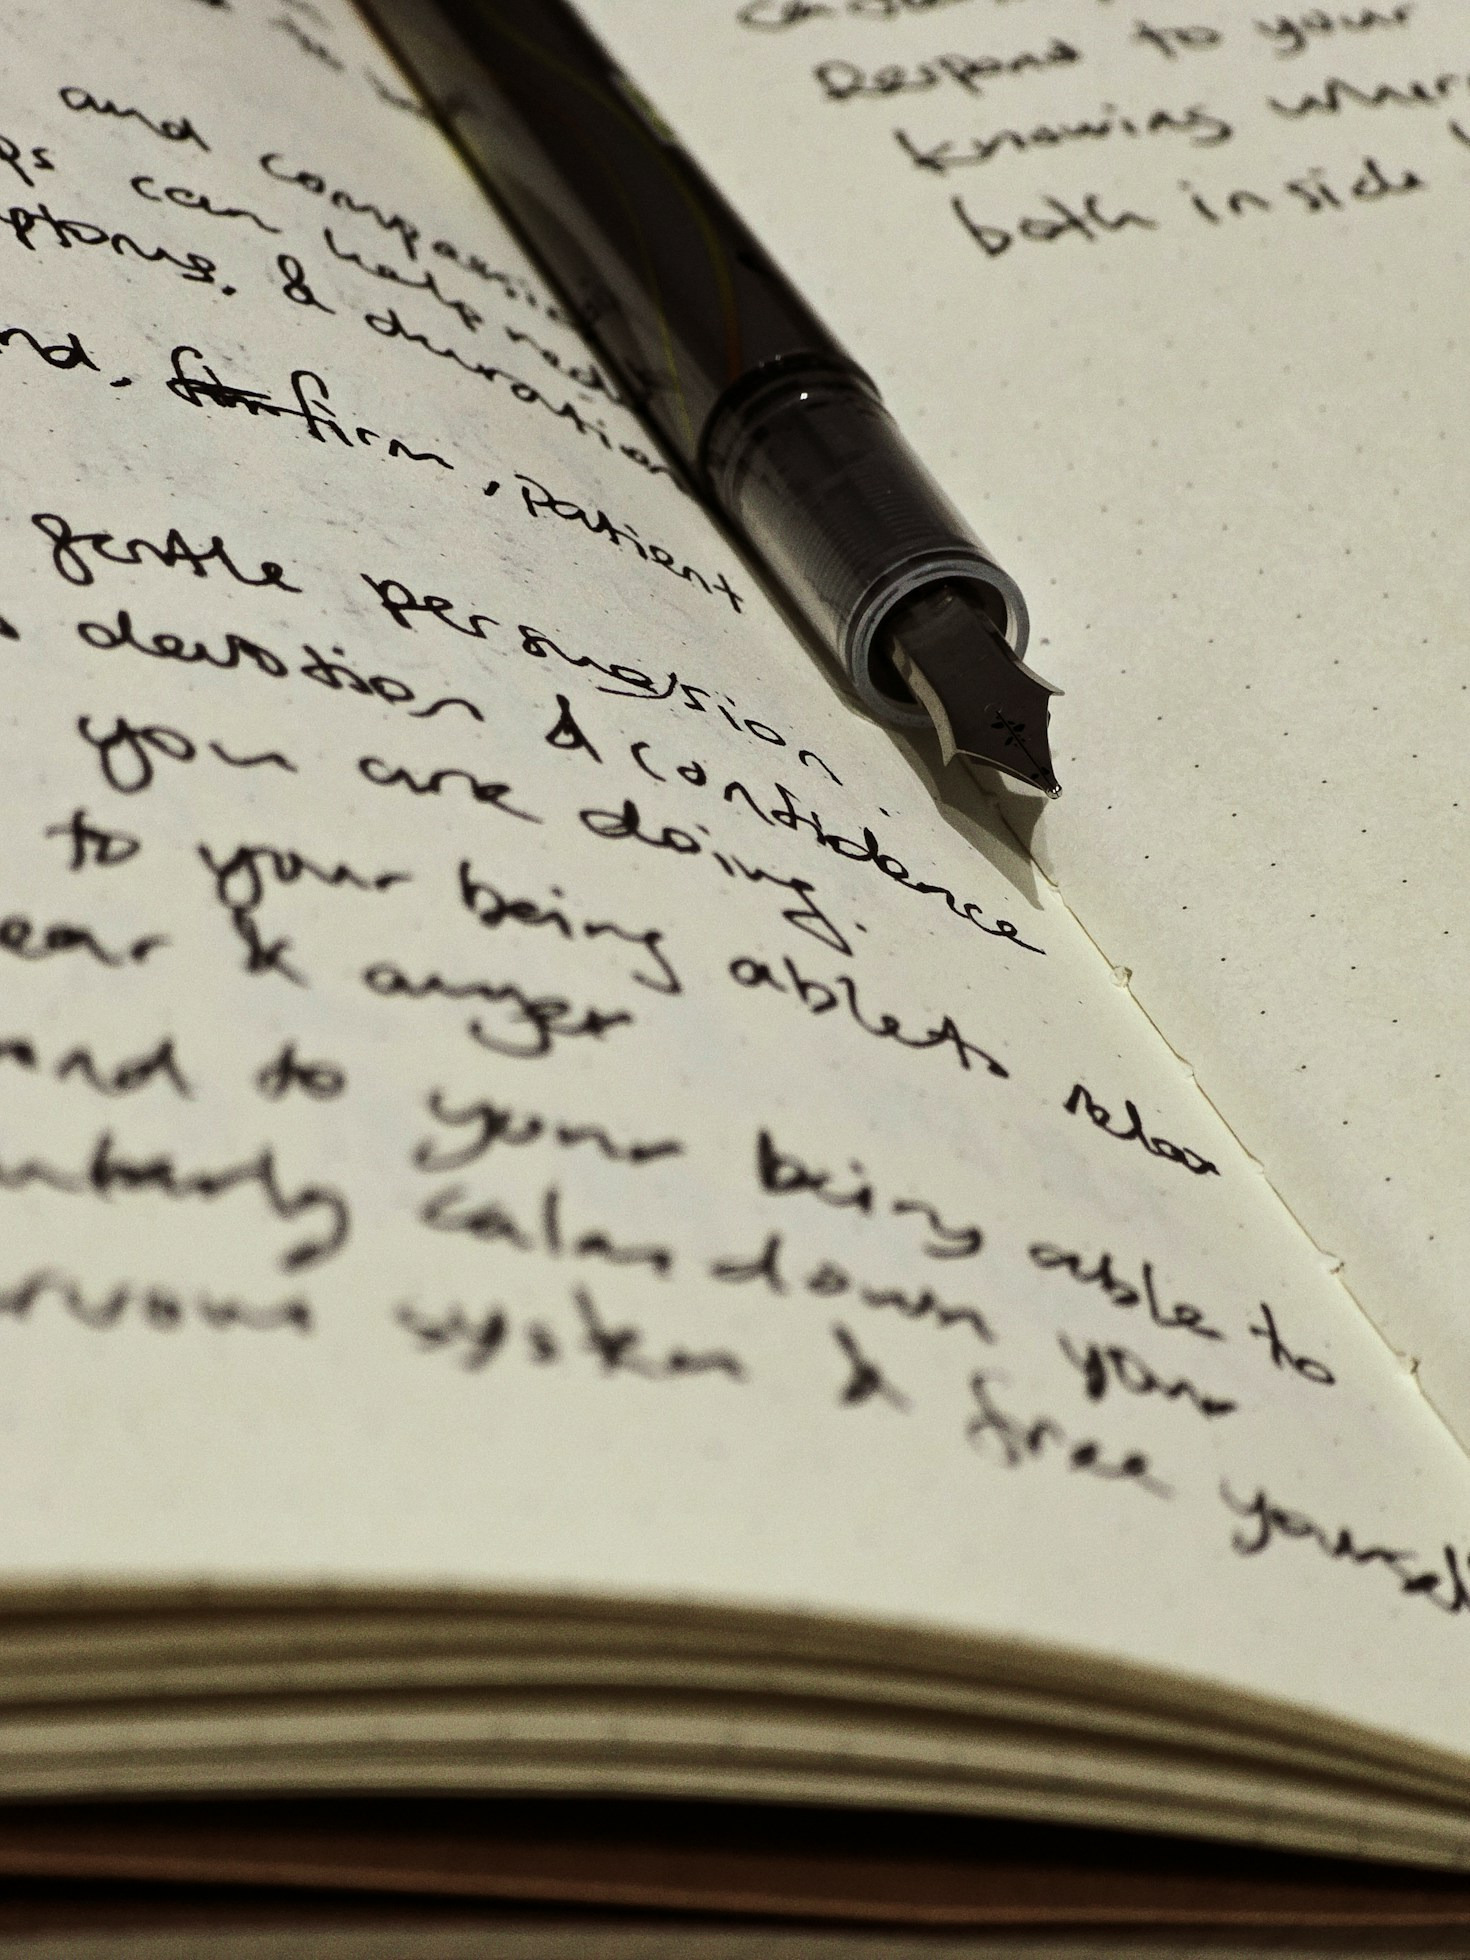 and compassion
ps can help redu
ptoms. & duration
nd, firm, patient
gentle persuasion
devotion & confidence
you are doing.
to your being able to relax
ear & anger
and to your being able to
calm down your
nervous system & free yourself
Respond to your
knowing wher
both inside